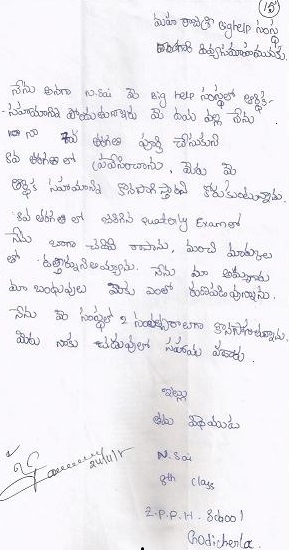 15
మహా రాజశ్రీ Bighelp సంస్థ
నేను అనగా N.Sai మీ Big help సంస్థలో ఆర్థిక
సహాయాన్ని పొందుతున్నాను మీ దయ వల్ల నేను
నా 7వ తరగతి పూర్తి చేసుకుని
8వ తరగతి లో ప్రవేసించాను, మీరు మీ
ఆర్థిక సహాయాన్ని కొనసాగిస్తారని కోరుకుంటున్నాను.
8వ తరగతి లో జరిగిన Quaterly Exam లో
నేను బాగా చదివి రాసాను, మంచి మార్కుల
తో ఉత్తీర్ణుని అయ్యాను. నేను మా అమ్మనాన్న
మా బంధువులు మీకు ఎంతో రుణపడివున్నాము.
నేను మీ సంస్థలో 2 సంవత్సరాలుగా కొనసాగుతున్నాను.
మీరు నాకు చదువులో సహాయ పడారు.
ఇట్లు
తమ విధేయుడు
N. Sai
8th Class
Z.P.P.H. School
Chodicherla.